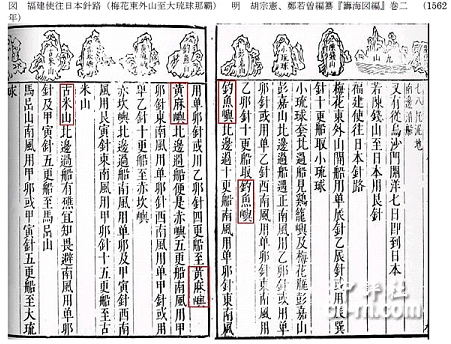 図　福建使往日本針路（梅花東外山至大琉球那覇）　明　胡宗憲、鄭若曽編纂『籌海図編』巻二　（1562
年）
小琉球
七八托泥地
南邊泊船
又有從烏沙門開洋七日即到日本
若陳錢山至日本用艮針
福建使往日本針路
梅花東外山開船用单辰針乙辰針或用辰巽
針十更船取小琉球
小琉球套北過船見雞籠嶼及梅花瓶彭嘉山
彭嘉山北邊過船遇正南風用乙卯針或用单
卯針或用单乙針西南風用单卯針東南風用
乙卯針十更船取釣魚嶼
釣魚嶼北邊過十更船南風用单卯針東南風
用单卯針或用乙卯針四更船至黃麻嶼
黃麻嶼北邊過船便是赤嶼五更船南風用甲
卯針東南風用单卯針西南風用单甲針或用
单乙針十更船至赤坎嶼
赤坎嶼北邊過船南風用单卯及甲寅針西南
風用艮寅針東南風用甲卯針十五更船至古
米山
古米山北邊過船有礁宜知畏避南風用单卯
針及甲寅針五更船至馬岊山
馬岊山南風用甲卯或甲寅針五更船至大琉
球